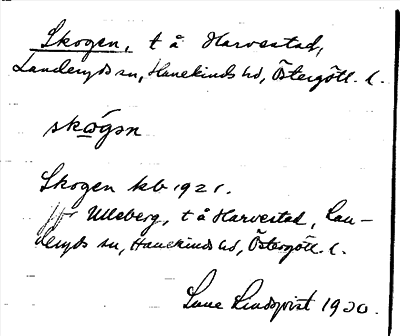 Skogen, t å Harvestad,
Landeryds sn, Hanekinds hd, Östergötl. l.
skógən
Skogen kb 1921.
jfr Ulleberg, t å Harvestad, Lan-
deryds sn, Hanekinds hd, Östergötl. l.
Sune Lindqvist 1930.